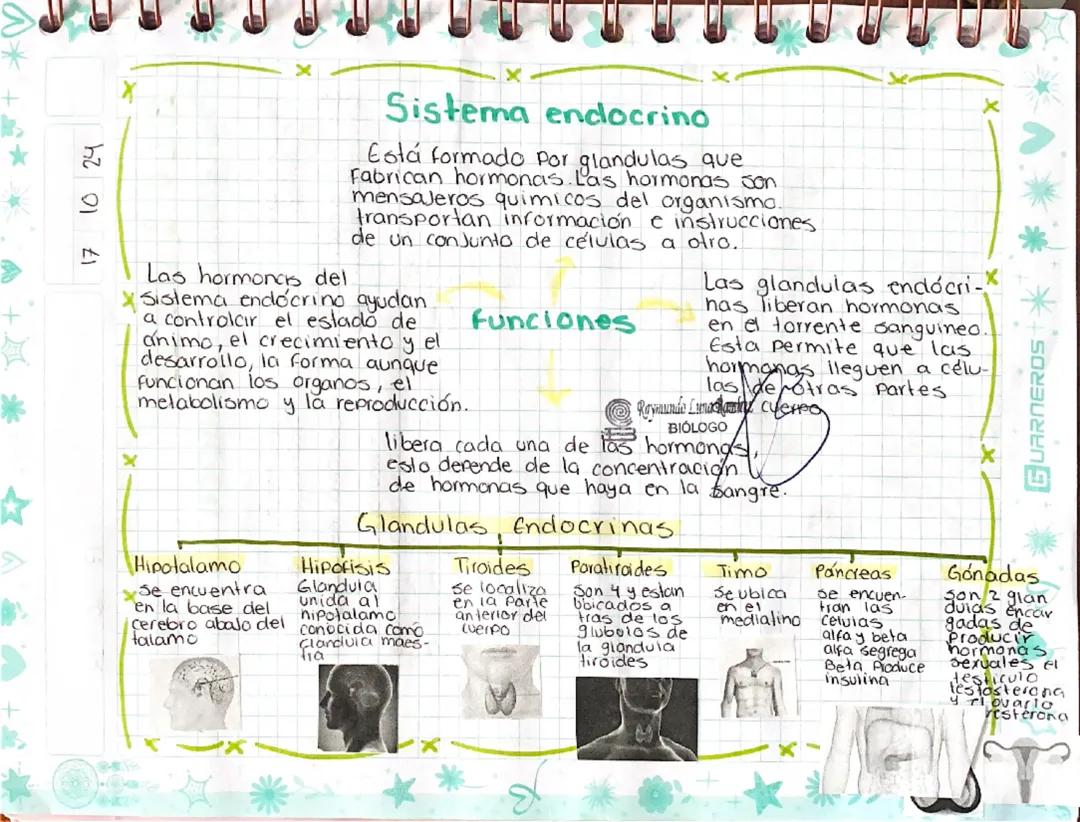 17 10 24
Sistema endocrino
Está formado por glandulas que
fabrican hormonas. Las hormonas son
mensajeros quimicos del organismo.
transportan información e instrucciones
de un conjunto de células a otro.
Las hormonas del
sistema endócrino ayudan
a controlar el estado de
ánimo, el crecimiento y el
desarrollo, la forma aunque
funcionan los organos, el
metabolismo y la reproducción.
Funciones
Las glandulas endócri-
nas liberan hormonas
en el torrente sanguineo.
Esta permite que las
hormonas lleguen a célu-
las de otras partes
cuerpo
Raymundo Luna
BIÓLOGO
libera cada una de las hormonas,
esto depende de la concentración
de hormonas que haya en la sangre.
Glandulas Endocrinas
Hipotalamo
se encuentra
en la base del
cerebro abajo del
talamo
Hipófisis
Glandula
unida al
hipotalamo
conocida como
glandula maes-
tra
Tiroides
se localiza
en la parte
anterior del
cuerpo
Paratiroides
son 4 y estan
ubicados a
tras de los
globulos de
la glandula
tiroides
Timo
se ubica
en el
mediatino
Páncreas
se encuen-
tran las
celulas
alfa y beta
alfa segrega
Beta produce
insulina
Gónadas
son 2 glan
dulas encar
gadas de
producir
hormonas
sexuales el
testiculo
testosterona
y el ovario
resterona
GUARNEROS